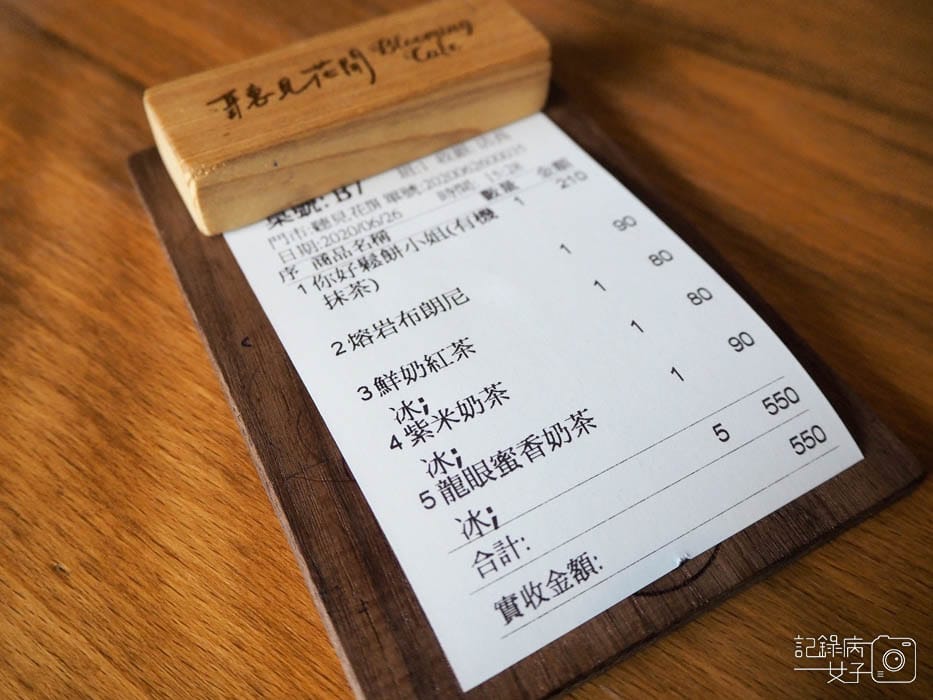 聽見花開 Blooming Cafe
桌號: B7
門市:聽見花開 單號:2020062600035
日期:2020/06/26 時間 15:28
序 商品名稱 數量 金額
1 你好鬆餅小姐(有機 1 210
抹茶)
2 熔岩布朗尼 1 90
3 鮮奶紅茶 1 80
冰;
4 紫米奶茶 1 80
冰;
5 龍眼蜜香奶茶 1 90
冰;
合計: 5 550
實收金額: 550
記錄病
女子